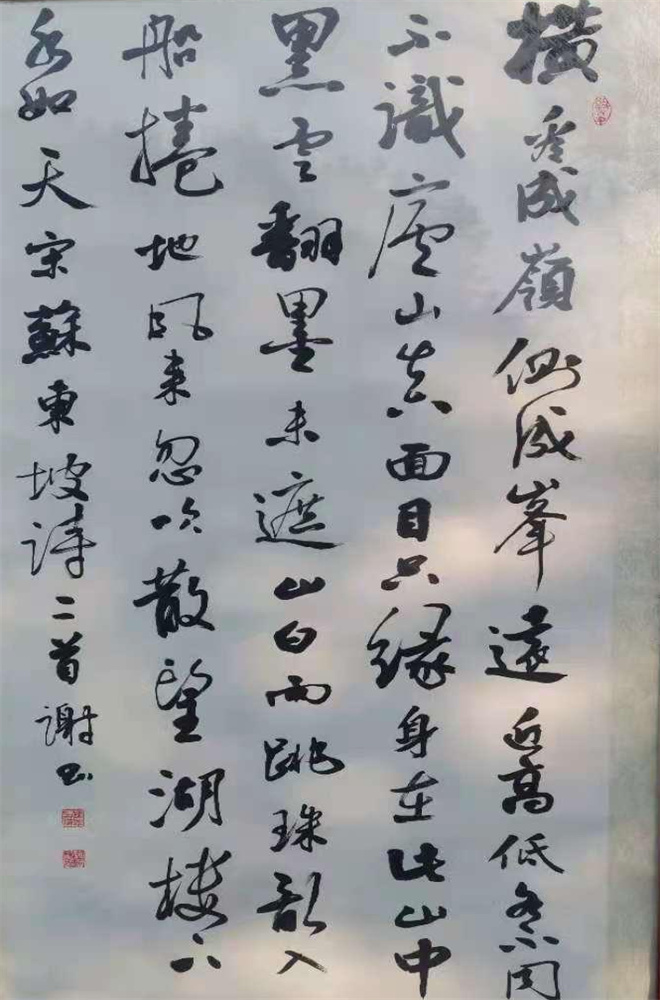 橫看成嶺側成峯遠近高低各不同
不識廬山真面目只緣身在此山中
黑雲翻墨未遮山白雨跳珠亂入
船捲地風来忽吹散望湖樓下
水如天宋蘇東坡詩二首謝书